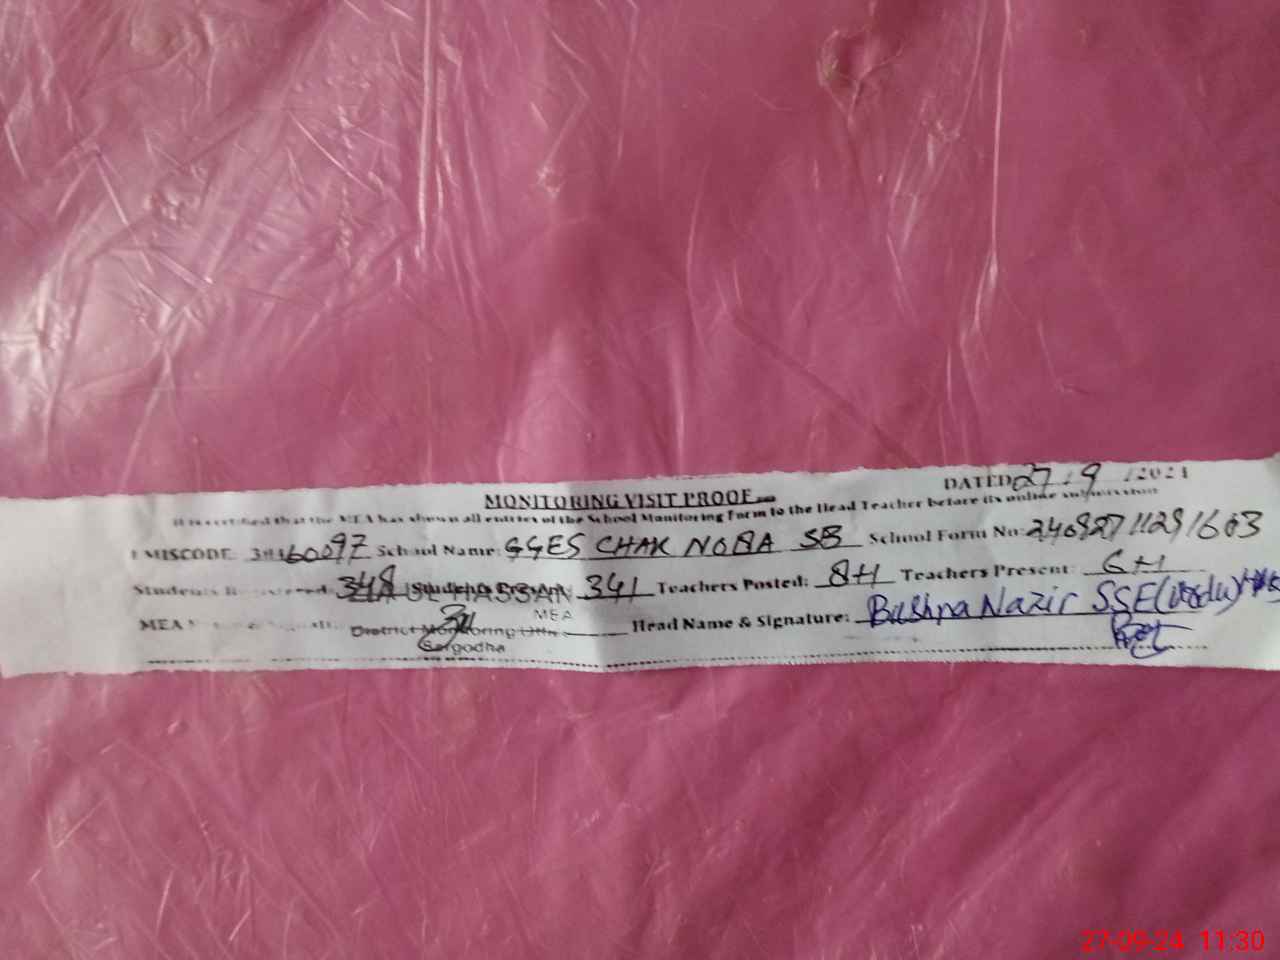 MONITORING VISIT PROOF
DATED 27/9/2024
It is certified that the MEA has shown all entries of the School Monitoring Form to the Head Teacher before its online submission
EMISCODE: 38460097 School Name: GGES CHAK NO 8A SB School Form No: 24092711291603
Students Registered: 348 Students Present: 341 Teachers Posted: 8+1 Teachers Present: 6+1
MEA
MEA Head Name & Signature: Bushra Nazir SSE (Urdu)
District Monitoring
Sargodha
27-09-24 11:30